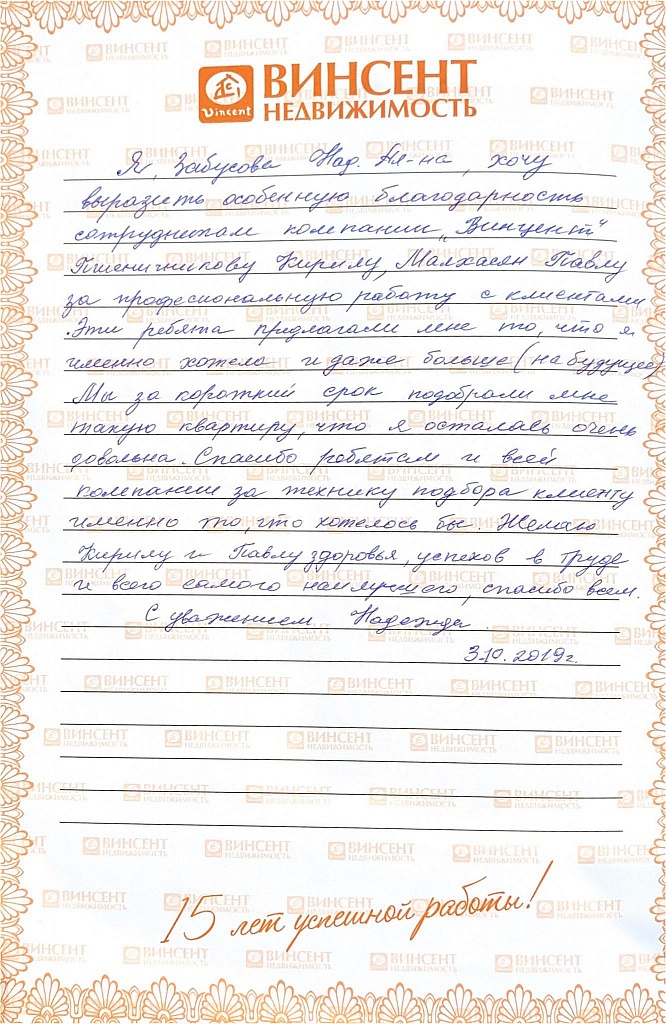 Vincent
ВИНСЕНТ
НЕДВИЖИМОСТЬ
Я, Забусова Над. Ал-на, хочу
выразить особенную благодарность
сотрудникам компании „Винцент“
Пшеничникову Кирилу, Малхасян Павлу
за професиональную работу с клиентами
. Эти ребята предлагали мне то, что я
именно хотела и даже больше (на будущее)
Мы за короткий срок подобрали мне
такую квартиру, что я осталась очень
довольна. Спасибо роблятам и всей
компании за технику подбора клиенту
именно то, что хотелось бы. Желаю
Кирилу и Павлу здоровья, успехов в труде
и всего самого наилучшего, спасибо всем.
С уважением Надежда.
3.10.2019г.
15 лет успешной работы!